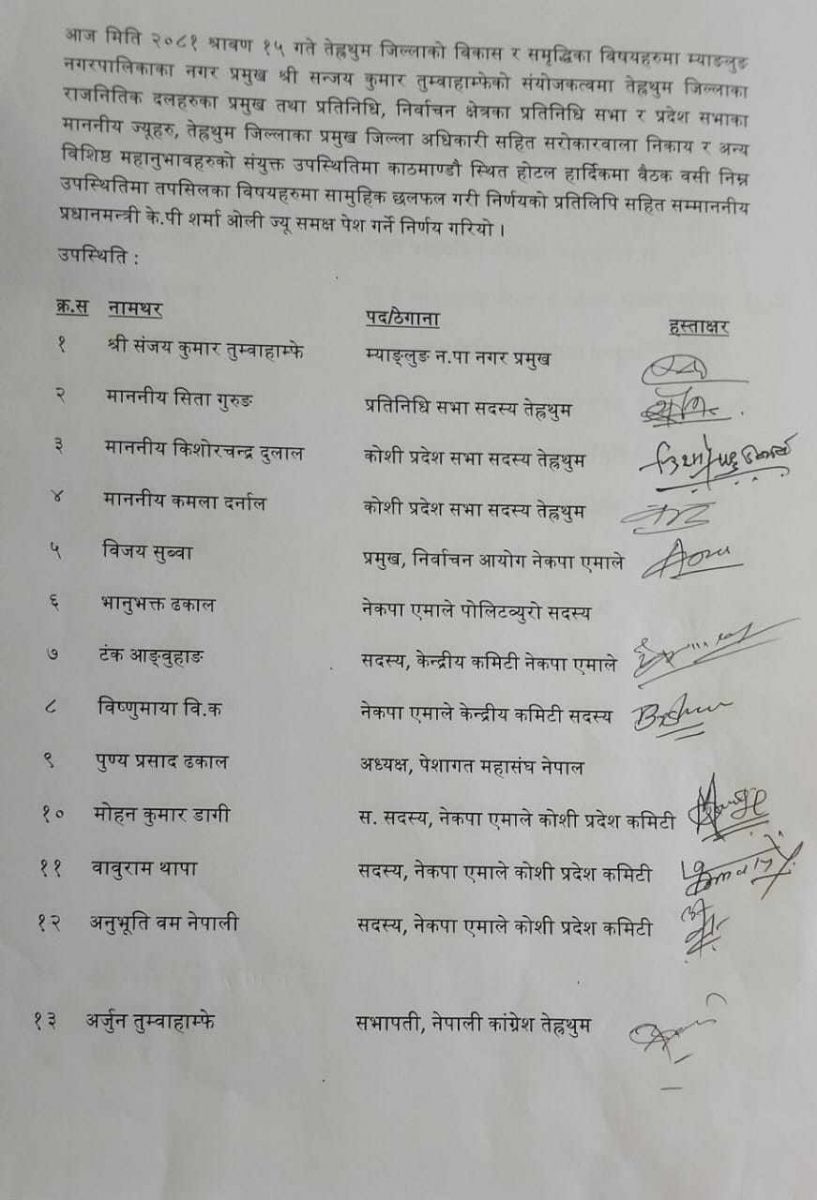 आज मिति २०८१ श्रावण १५ गते तेह्रथुम जिल्लाको विकास र समृद्धिका विषयहरुमा म्याङलुङ
नगरपालिकाका नगर प्रमुख श्री सन्जय कुमार तुम्वाहाम्फेको संयोजकत्वमा तेह्रथुम जिल्लाका
राजनितिक दलहरुका प्रमुख तथा प्रतिनिधि, निर्वाचन क्षेत्रका प्रतिनिधि सभा र प्रदेश सभाका
माननीय ज्यूहरु, तेह्रथुम जिल्लाका प्रमुख जिल्ला अधिकारी सहित सरोकारवाला निकाय र अन्य
विशिष्ठ महानुभावहरुको संयुक्त उपस्थितिमा काठमाण्डौ स्थित होटल हार्दिकमा वैठक वसी निम्न
उपस्थितिमा तपसिलका विषयहरुमा सामुहिक छलफल गरी निर्णयको प्रतिलिपि सहित सम्माननीय
प्रधानमन्त्री के.पी शर्मा ओली ज्यू समक्ष पेश गर्ने निर्णय गरियो ।
उपस्थिति :
क्र.स नामथर पद/ठेगाना हस्ताक्षर
१ श्री संजय कुमार तुम्वाहाम्फे म्याङ्लुङ न.पा नगर प्रमुख
२ माननीय सिता गुरुङ प्रतिनिधि सभा सदस्य तेह्रथुम
३ माननीय किशोरचन्द्र दुलाल कोशी प्रदेश सभा सदस्य तेह्रथुम
४ माननीय कमला दर्नाल कोशी प्रदेश सभा सदस्य तेह्रथुम
५ विजय सुब्वा प्रमुख, निर्वाचन आयोग नेकपा एमाले
६ भानुभक्त ढकाल नेकपा एमाले पोलिटव्युरो सदस्य
७ टंक आङ्वुहाङ सदस्य, केन्द्रीय कमिटी नेकपा एमाले
८ विष्णुमाया वि.क नेकपा एमाले केन्द्रीय कमिटी सदस्य
९ पुण्य प्रसाद ढकाल अध्यक्ष, पेशागत महासंघ नेपाल
१० मोहन कुमार डागी स. सदस्य, नेकपा एमाले कोशी प्रदेश कमिटी
११ वावुराम थापा सदस्य, नेकपा एमाले कोशी प्रदेश कमिटी
१२ अनुभूति वम नेपाली सदस्य, नेकपा एमाले कोशी प्रदेश कमिटी
१३ अर्जुन तुम्वाहाम्फे सभापती, नेपाली कांग्रेश तेह्रथुम